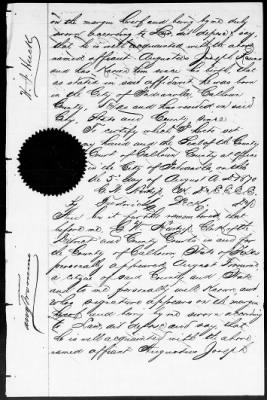 in the margin hereof and being by me duly
sworn according to Law did depose & say,
that he is well acquainted with above
named affiant Augustus Joseph
and has known him since his birth, that
as stated in said affidavit he was born
in the City of Indianola, Calhoun
County, Texas and has resided in said
City, State and County
To certify which I hereto set
my hand and the Seal of the County
Court of Calhoun County at office
in the City of Indianola on this
the 5th day of August A.D.
By
Be it further remembered that
before me
District and County Courts in and for
the County of Calhoun State of Texas
personally appeared August
a citizen of said County and State
and to me personally well known and
whose signature appears on the margin
hereof and being by me sworn according
to Law, did depose and say that
he is well acquainted with the above
named affiant Augustus Joseph